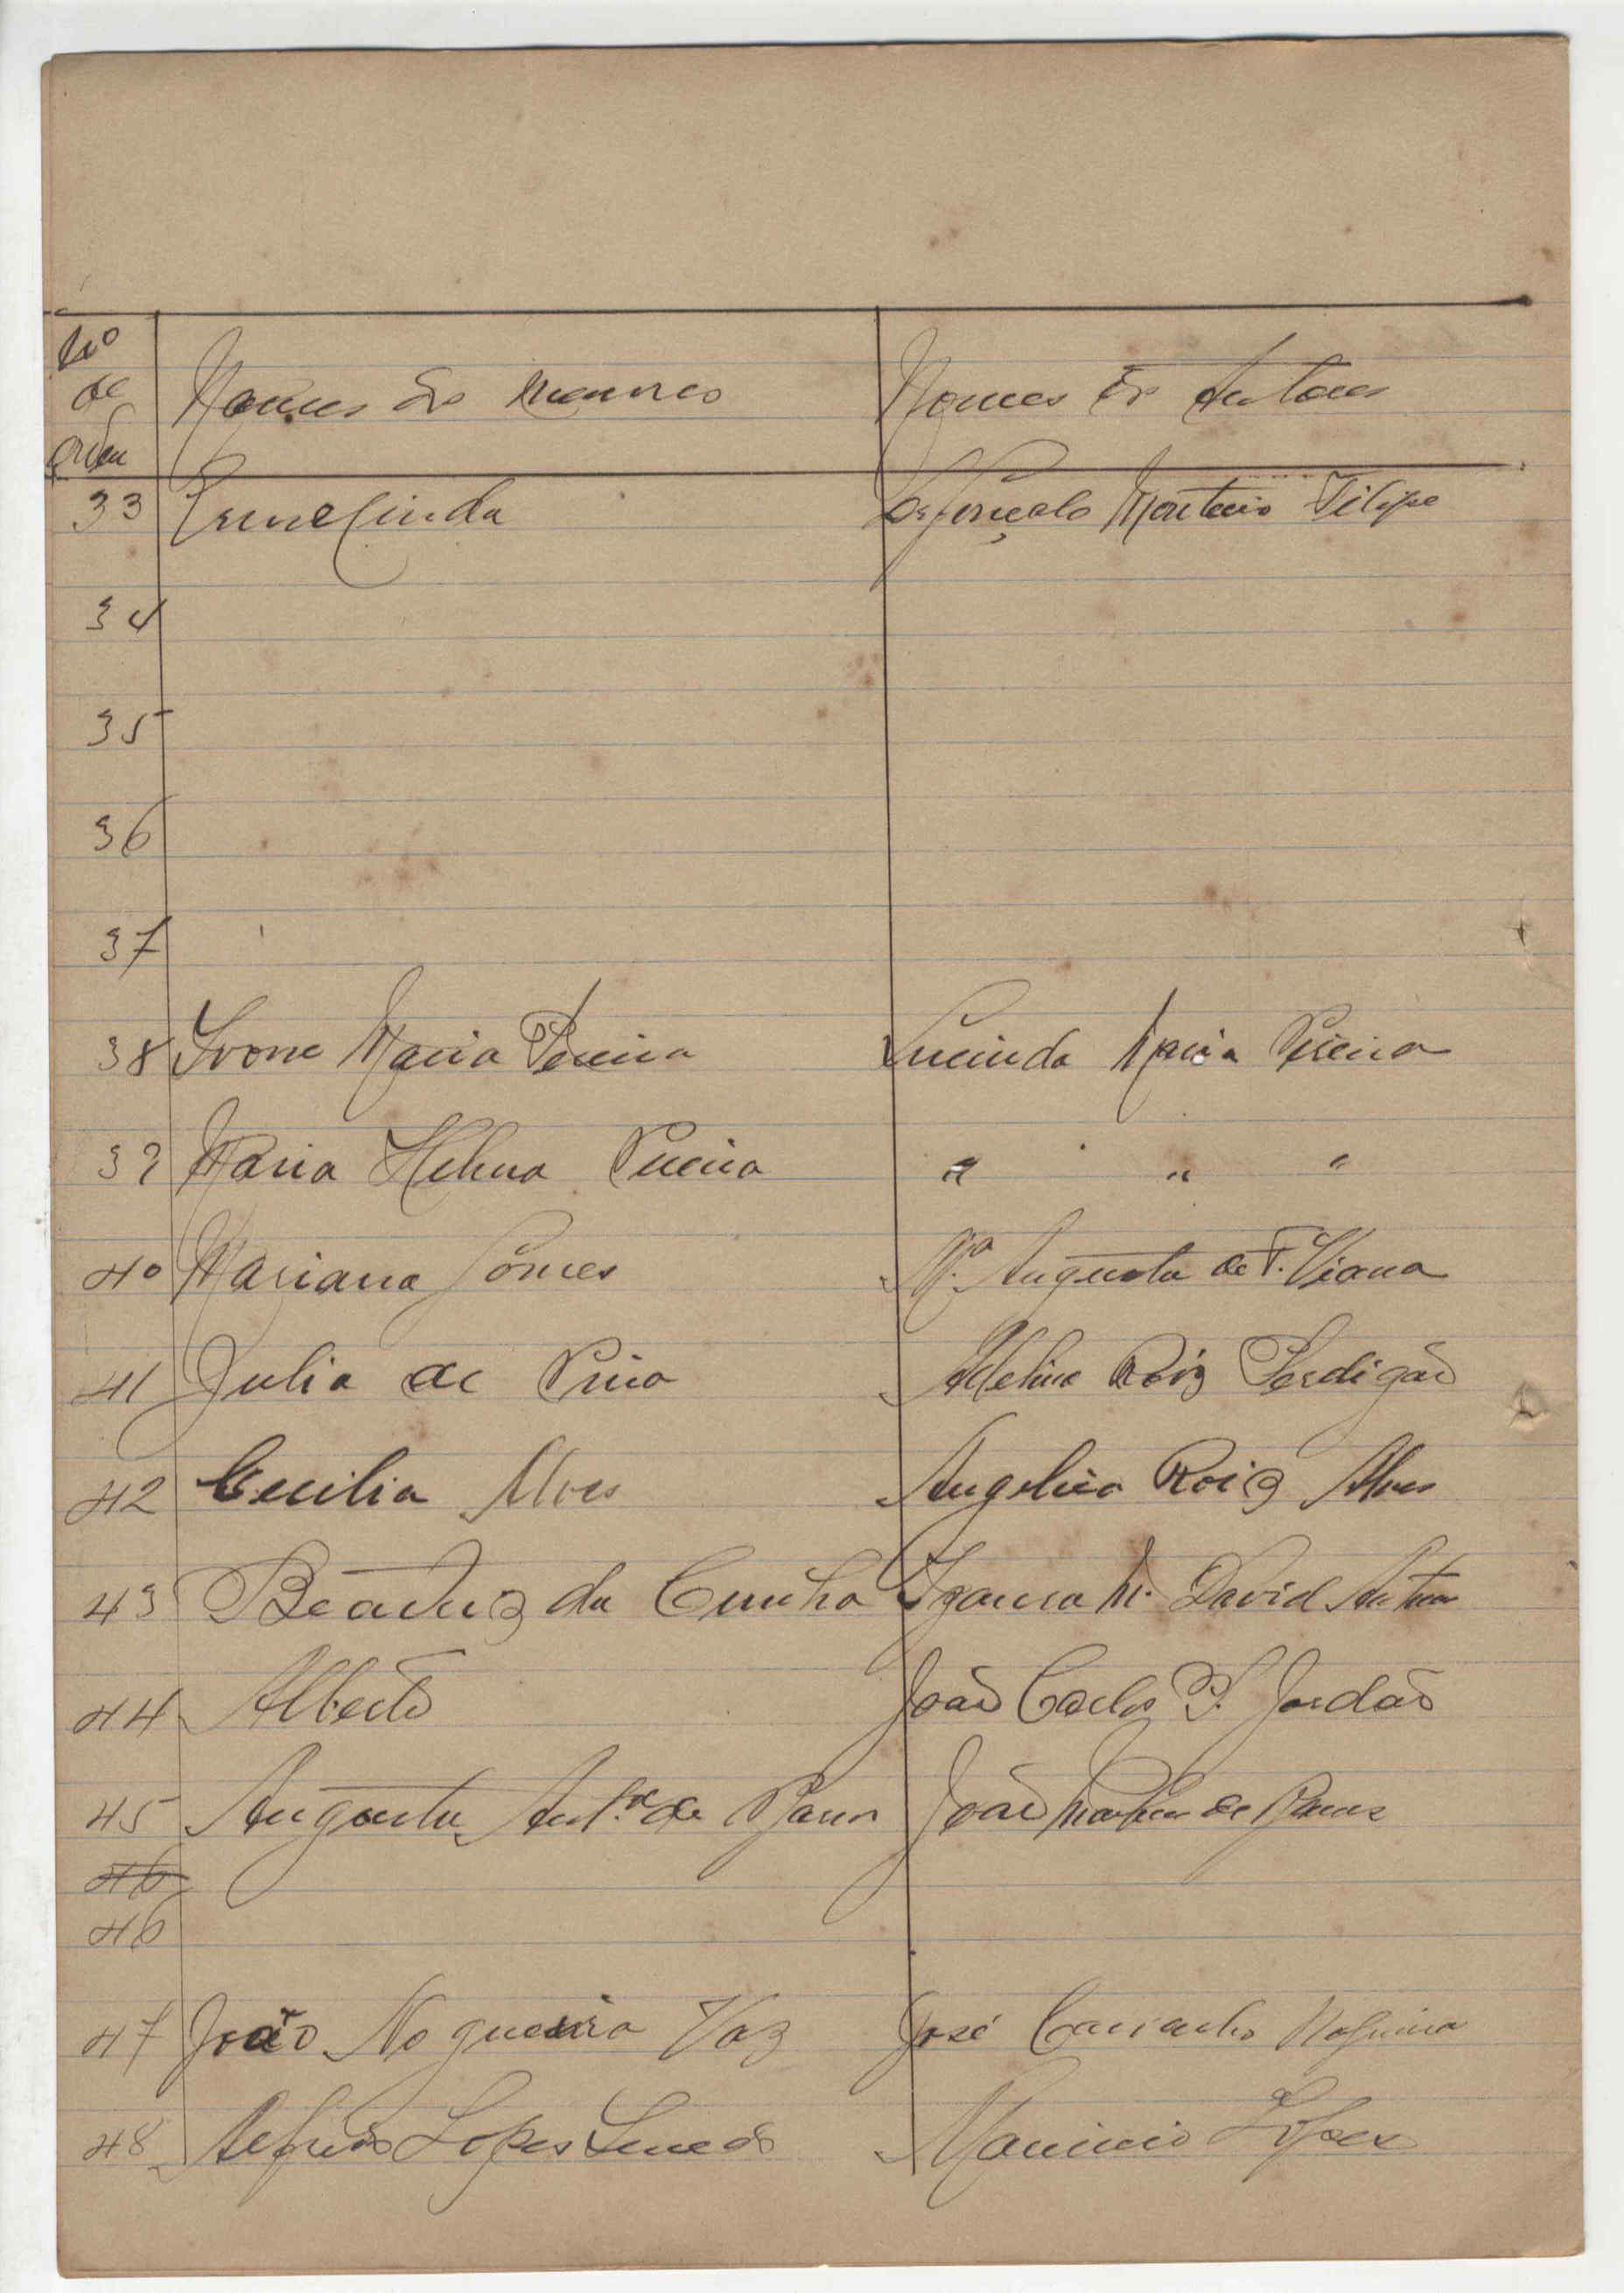 Nº
de
ordem
Nomes dos menores Nomes dos tutores
33 Ermelinda Dr Gonçalo Monteiro Filipe
34
35
36
37
38 Ivone Maria Pereira Lucinda Maria Pereira
39 Maria Helena Pereira " " "
40 Mariana Gomes Mª Augusta de F. Viana
41 Julia de Pina Adelina Roiz Perdigão
42 Cecilia Alves Angelica Roiz Alves
43 Beatriz da Cunha M. David
44 Alberto João Carlos P. Jordão
45 Augusta Antª de Barros João Martins de Barros
46
46
47 João Nogueira Vaz José Carvalho Nogueira
48 Alfredo Lopes Mauricio Lopes